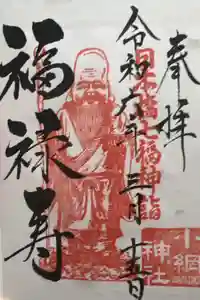 奉拝
日本橋七福神詣
令和六年三月十五日
福禄寿
小網
神社